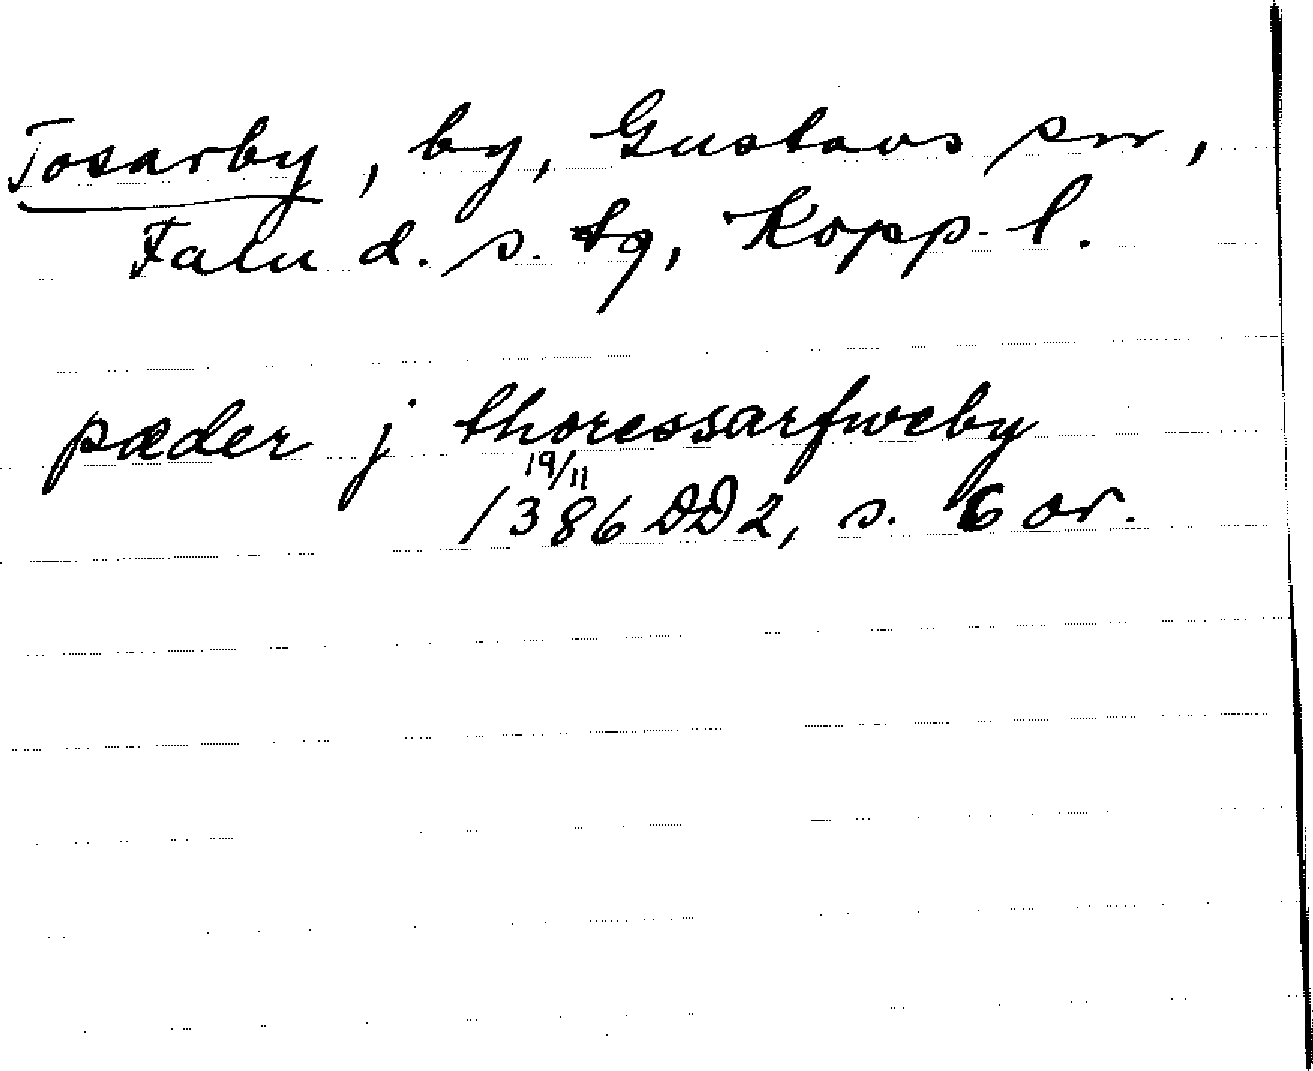 Tosarby, by, Gustavs sn,
Falu d. s. tg, Kopp. l.
pæder j thoressarfweby
19/11
1386 DD2, s. 6 or.